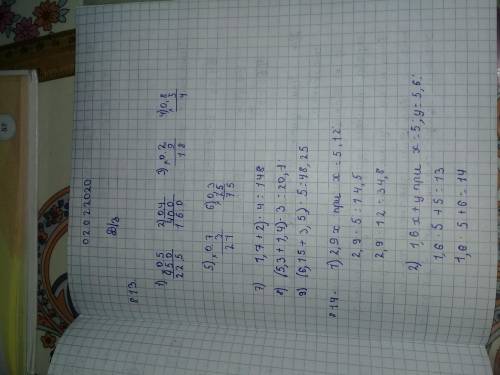 02.02.2020
Д/з
№13.
1) × 0,5
45,0
22,5
2) × 0,4
40,0
16,0
3) × 0,2
9
1,8
4) × 0,8
5
4
5) × 0,7
3
2,1
6) × 0,3
25
7,5
7) 1,7+2)·4=148
8) (5,3+1,4)·3=20,1
9) (6,15+3,5)·5=48,25
№14. 1) 2,9 x при x=5,12:
2,9·5=14,5
2,9·12=34,8
2) 1,6x+y при x=5; y=5,6:
1,6·5+5=13
1,6·5+6=14